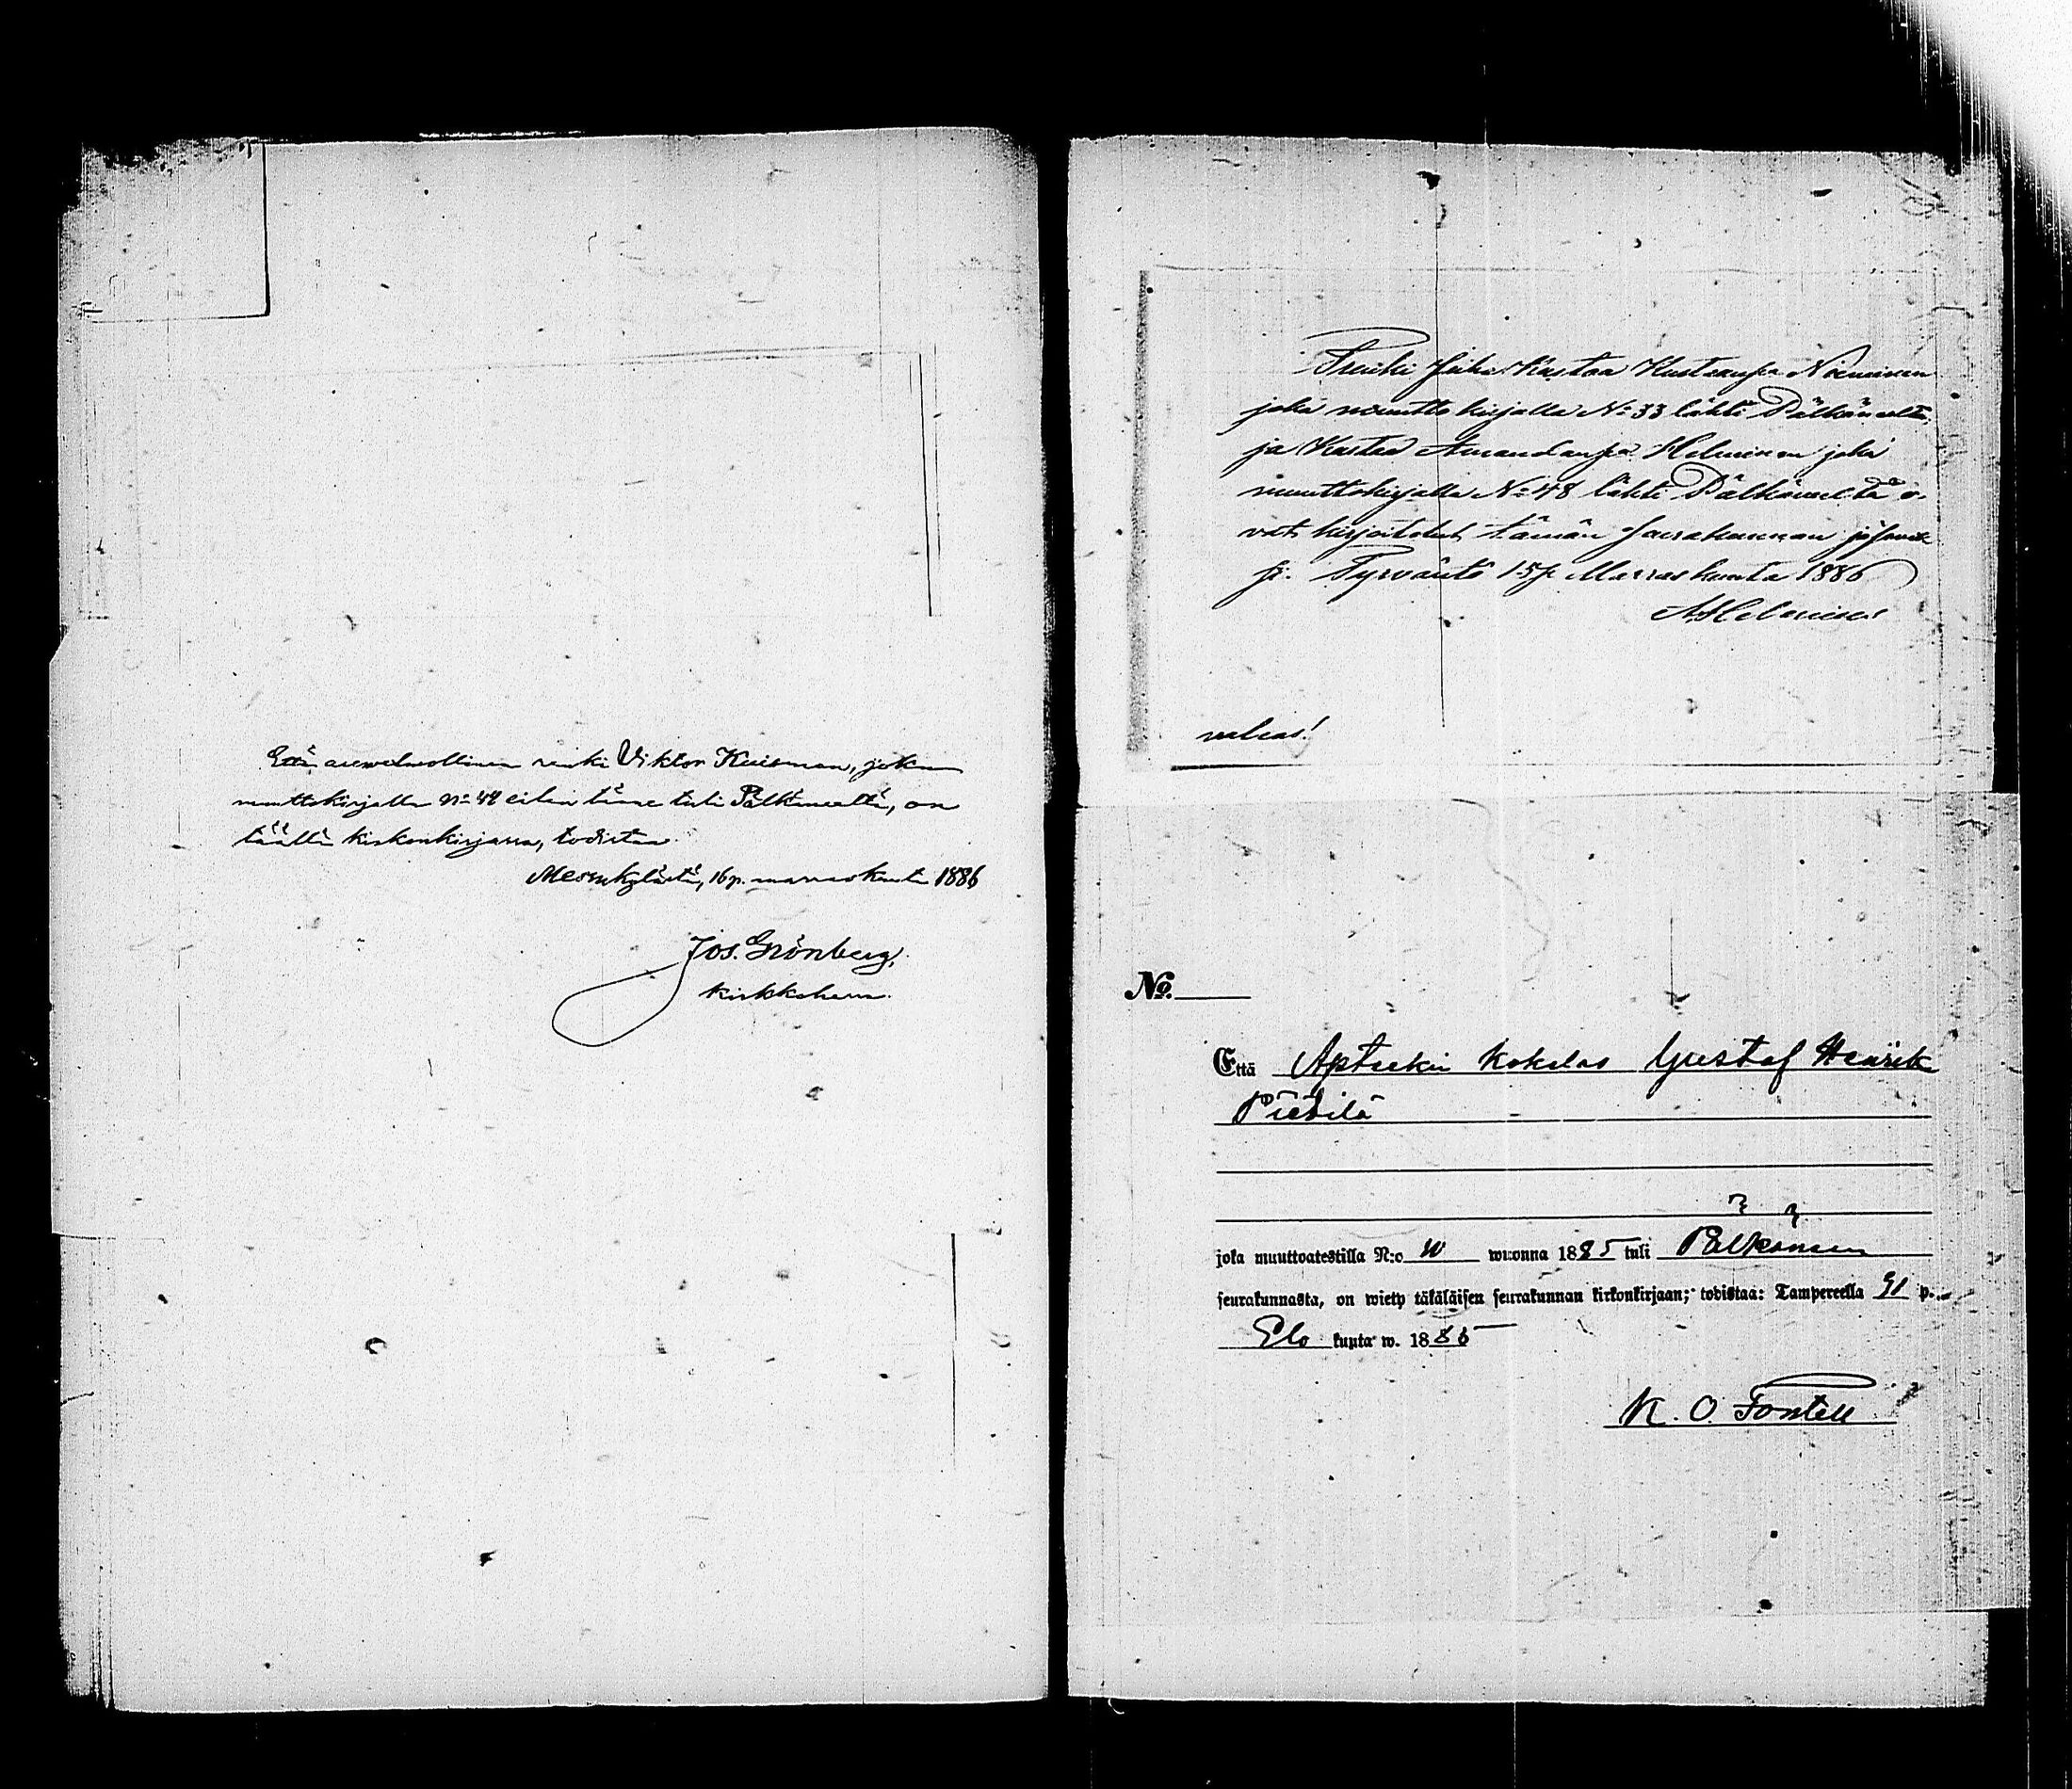 Että asevelvollinen renki Viktor Kuisman, joka
muuttokirjalla No 44 eilen tänne tuli Pälkäneeltä, on
täällä kirkonkirjassa, todistaa
Messukylästä, 16 p. marraskuuta 1886
Jos. Grönberg,
kirkkoherra.
Renki Juho Kustaa Kustaanpa Nieminen
joka muuttokirjalla No 33 lähti Pälkäneeltä,
ja Kustaa Amandanpa Helminen joka
muuttokirjalla No 48 lähti Pälkäneeltä o-
vat kirjoitetut tämän seurakunnan jäsenik
si. Tyrväntö 15 p Marraskuuta 1886
A. Helminen
No.
Että Apteekin kokelas Gustaf Henrik
Pietilä
joka muuttoatestilla N:o wuonna 1885 tuli Pälkäneen
seurakunnasta, on wiety täkäläisen seurakunnan kirkonkirjaan; todistaa: Tampereella 31 p.
Elo kuuta w. 1885
K. O. Fontell